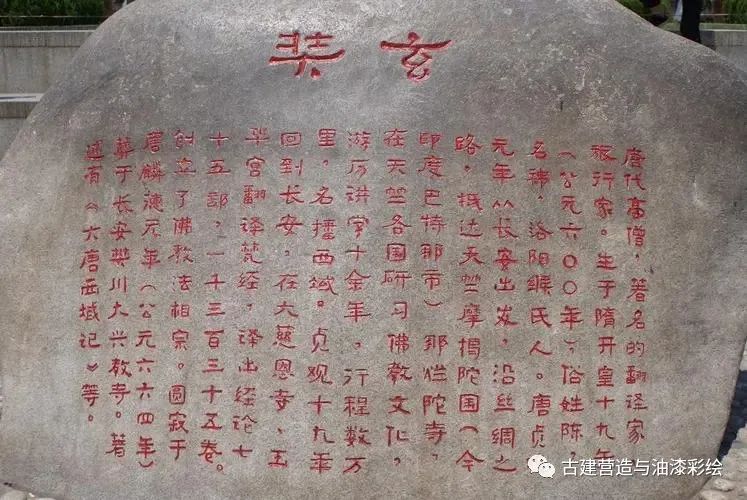 玄奘
唐代高僧，著名的翻译家、
旅行家。生于隋开皇十九年
（公元六〇〇年），俗姓陈
名祎，洛阳缑氏人。唐贞
元年从长安出发，沿丝绸之
路，抵达天竺摩揭陀国（今
印度巴特那市）那烂陀寺，
在天竺各国研习佛教文化，
游历讲学十余年，行程数万
里，名播西域。贞观十九年
回到长安，在大慈恩寺、玉
华宫翻译梵经，译出经论七
十五部，一千三百三十五卷。
创立了佛教法相宗。圆寂于
唐麟德元年（公元六六四年）
葬于长安樊川大兴教寺。著
述有《大唐西域记》等。
古建营造与油漆彩绘